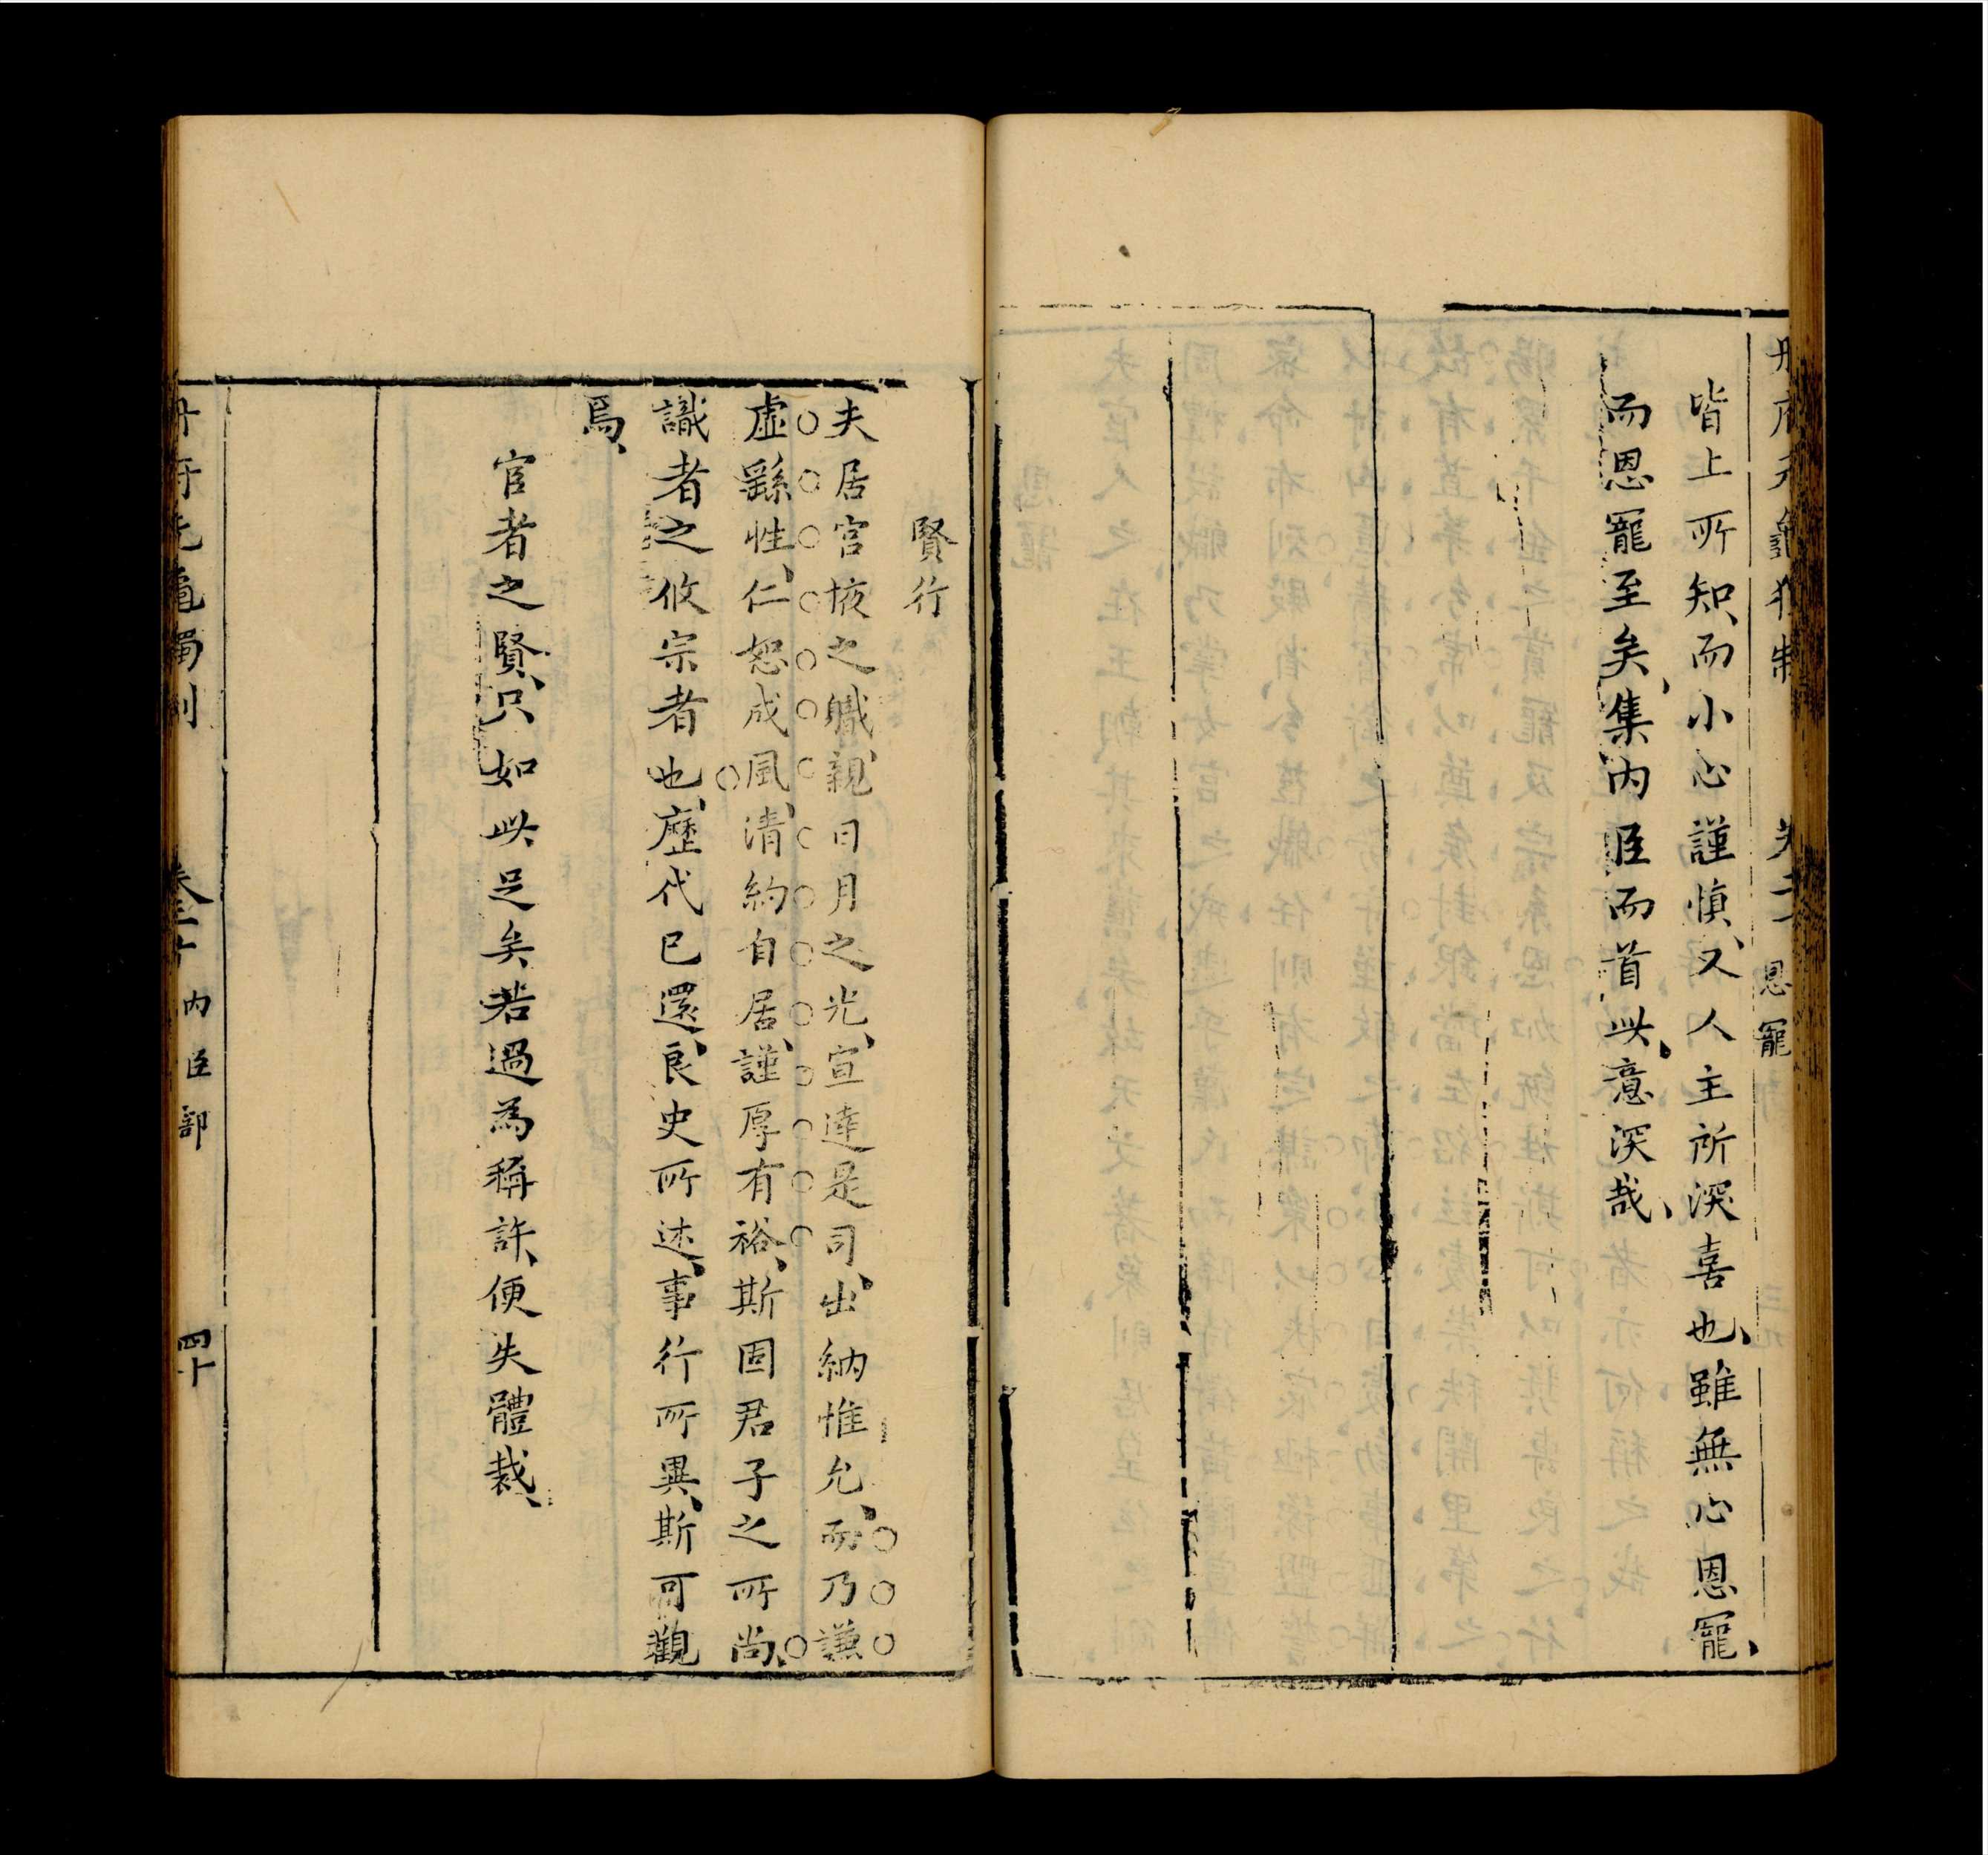 恩寵
皆上所知而小心謹慎又人主所深喜也雖無心恩寵
而恩寵至矣集內臣而首此意深哉
賢行
夫居宮掖之職親日月之光宣達是司出納惟允而乃謙
虛繇性仁恕成風清約自居謹厚有裕斯固君子之所尚
識者之攸宗者也歷代已還良史所述事行所異斯可觀
焉
宦者之賢只如此足矣若過為稱許便失體裁
內臣部
四十